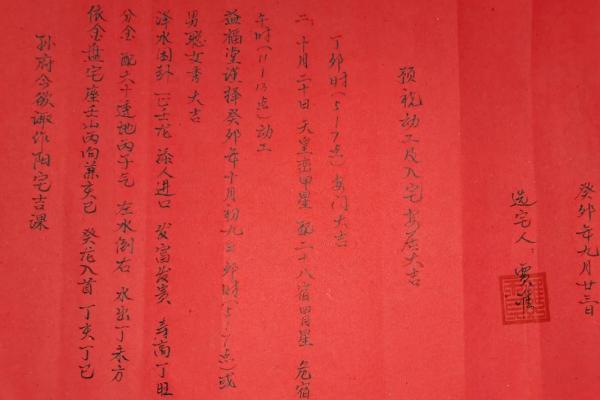 孙府今敬诹作阳宅吉课
依金盘宅座壬山丙向兼亥巳 癸龙入首 丁亥丁巳
分金 配六十透地丙子气 左水倒右 水出丁未方
泽水困卦 添人进口 发富发贵 寿高丁旺
男聪女秀 大吉
益福堂谨择癸卯年十月初九日 卯时(5-7点)或
午时(11-13点)动工
二、十月二十日 天皇銮甲星 配二十八宿 月星 危宿
丁卯时(5-7点)安门大吉
预祝动工及入宅安居大吉
选宅人: 贾
癸卯年九月廿三日